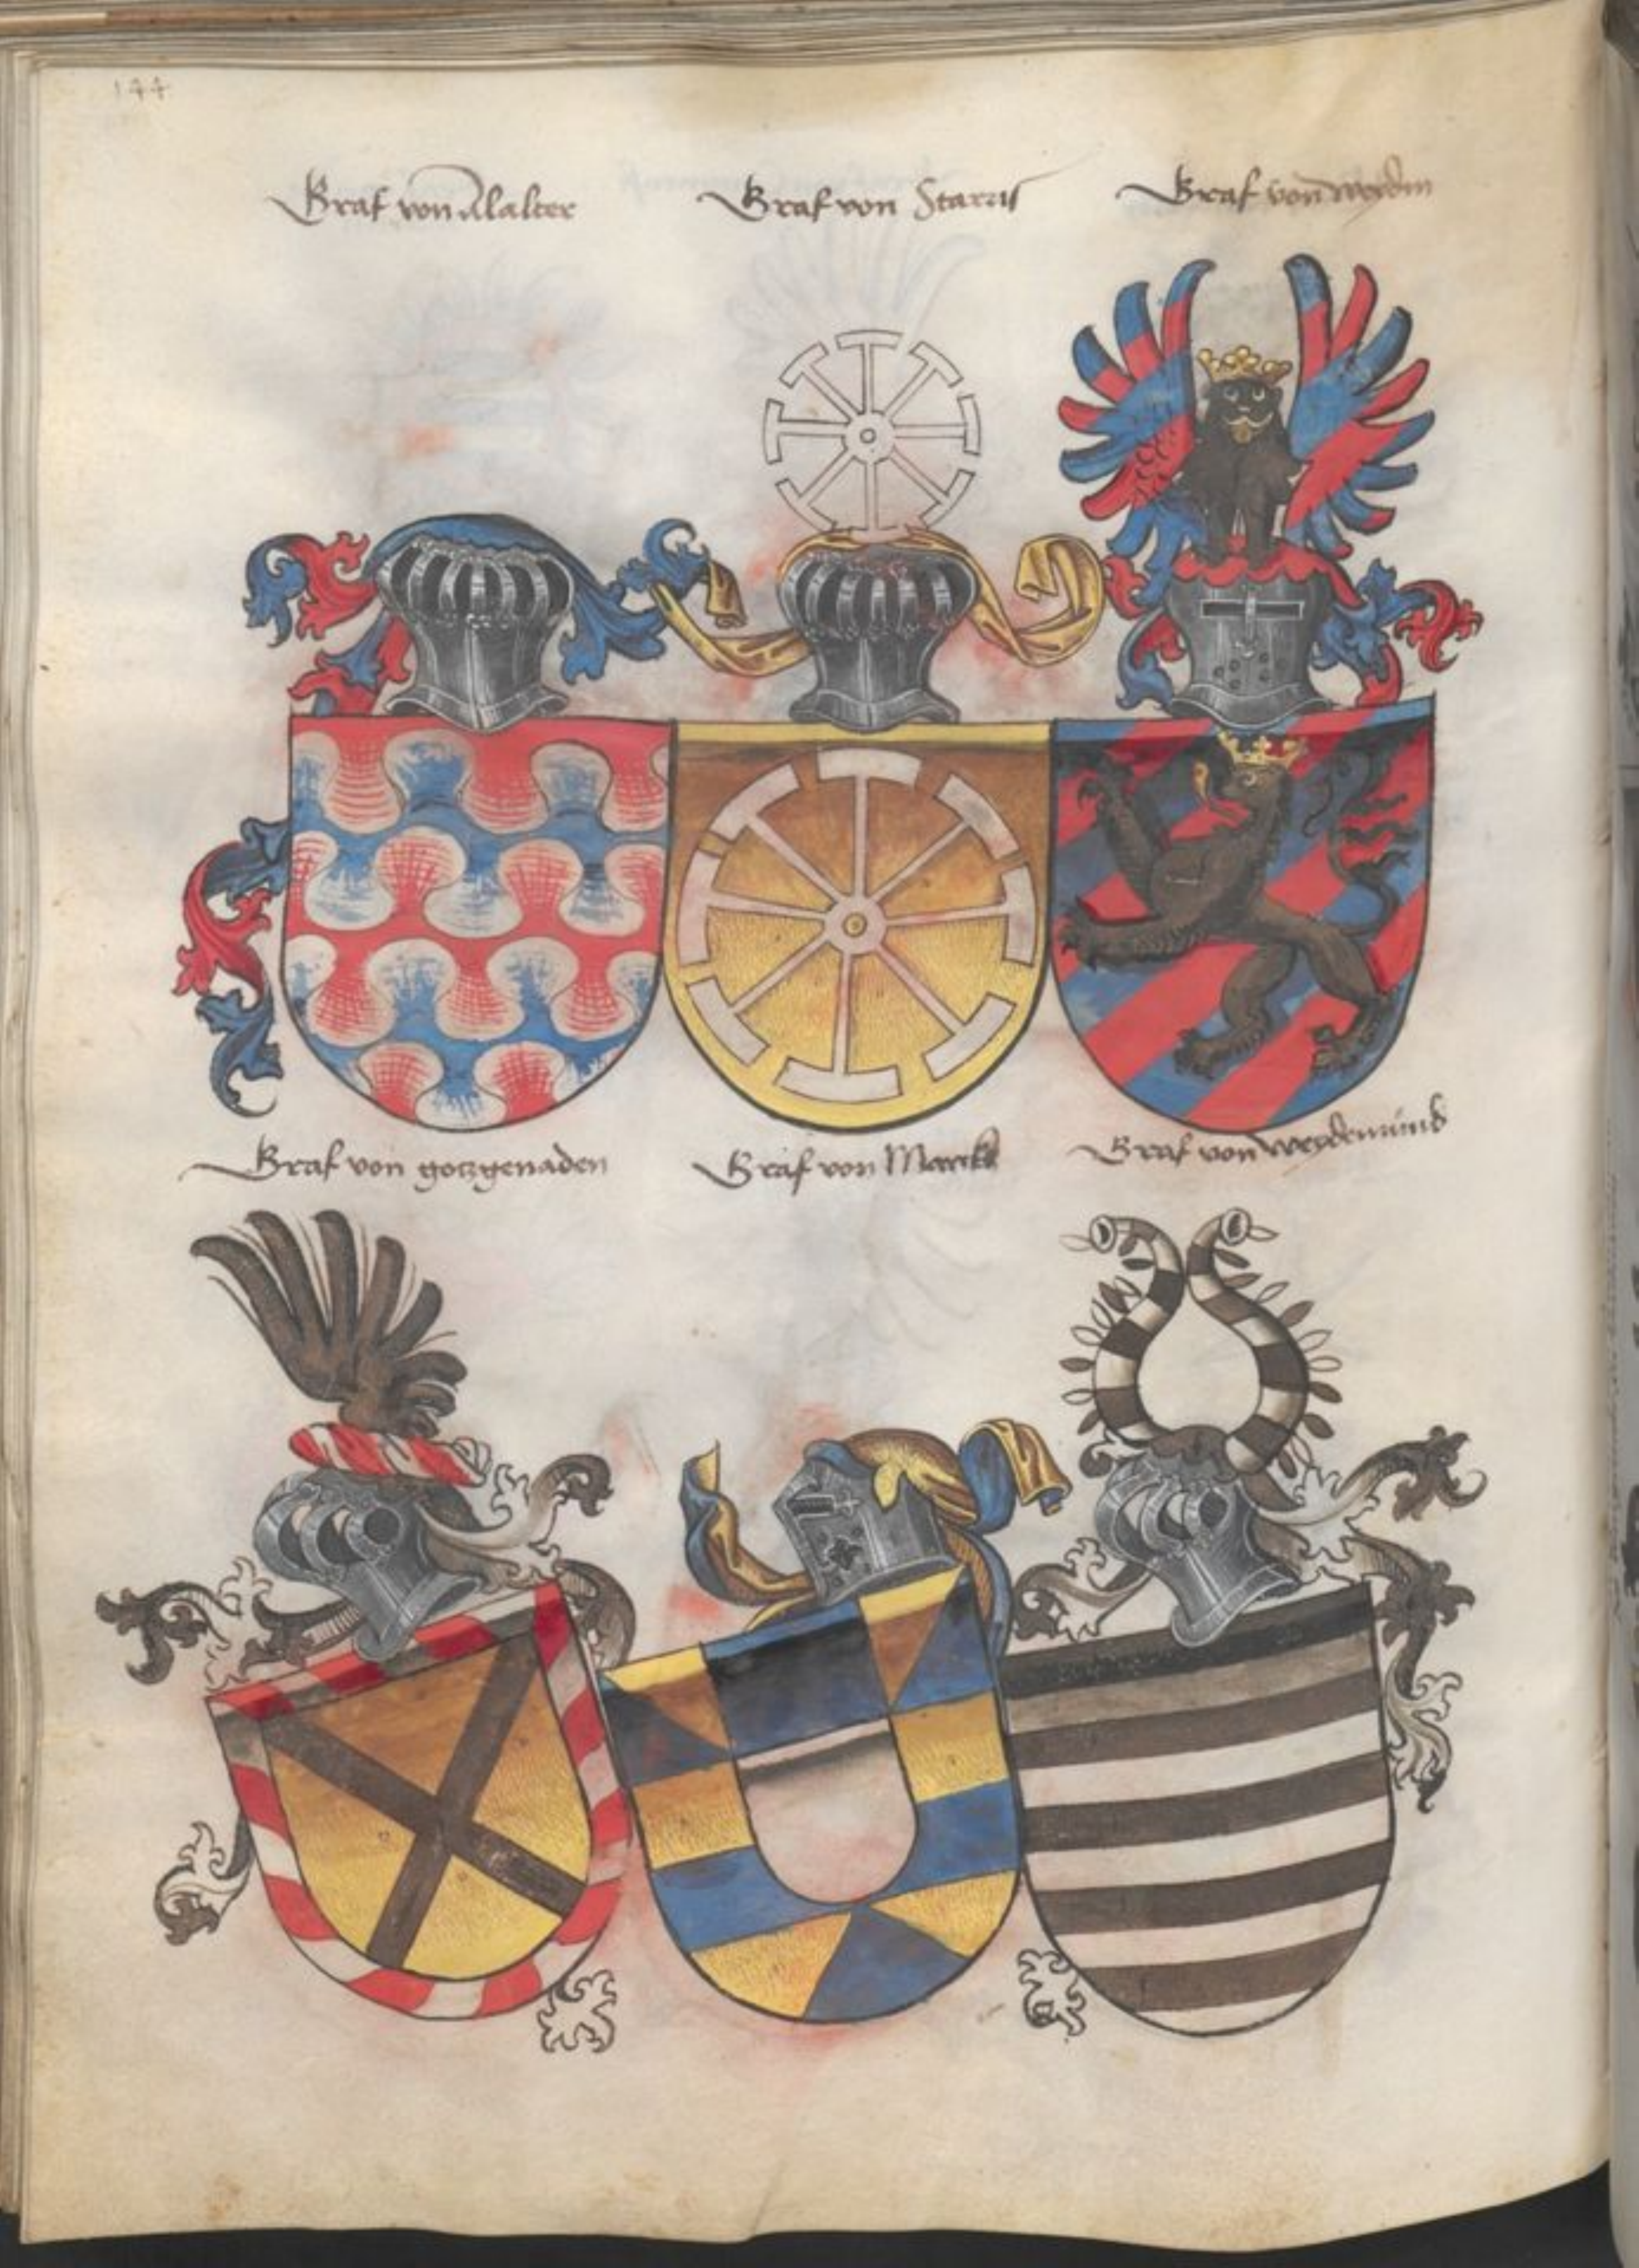 144
Graf von Alalter
Graf von Starris
Graf von
Graf von gotzgenaden
Graf von Marckh
Graf von weydemünd